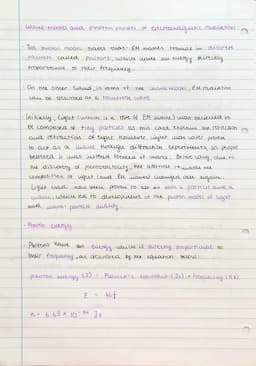 Wave model and photon model of electromagnetic radiation
The photon model states that EM waves travel in discrete
packets called photons, which have an energy directly
proportional to their frequency.
On the other hand, in terms of the wave model, EM radiation
can be described as a transverse wave.
Initially, light (which is a type of EM wave) was believed to
be composed of tiny particles as this could explain the reflection
and refraction of light. However, light was later proved
to act as a wave through diffraction experiments, so people
believed it was instead formed of waves. Being only due to
the discovery of photoelectricity, the attitude towards the
composition of light (and EM waves) changed once again.
Light had now been proven to act as both a particle and a
wave, which led to development of the photon model of light
and wave-particle duality.
Photon energy
Photons have an energy which is directly proportional to
their frequency, as described by the equation below:
photon energy (J) = Planck's constant (Js) × frequency (Hz)
E = hf
h = 6.63 × 10⁻³⁴ Js